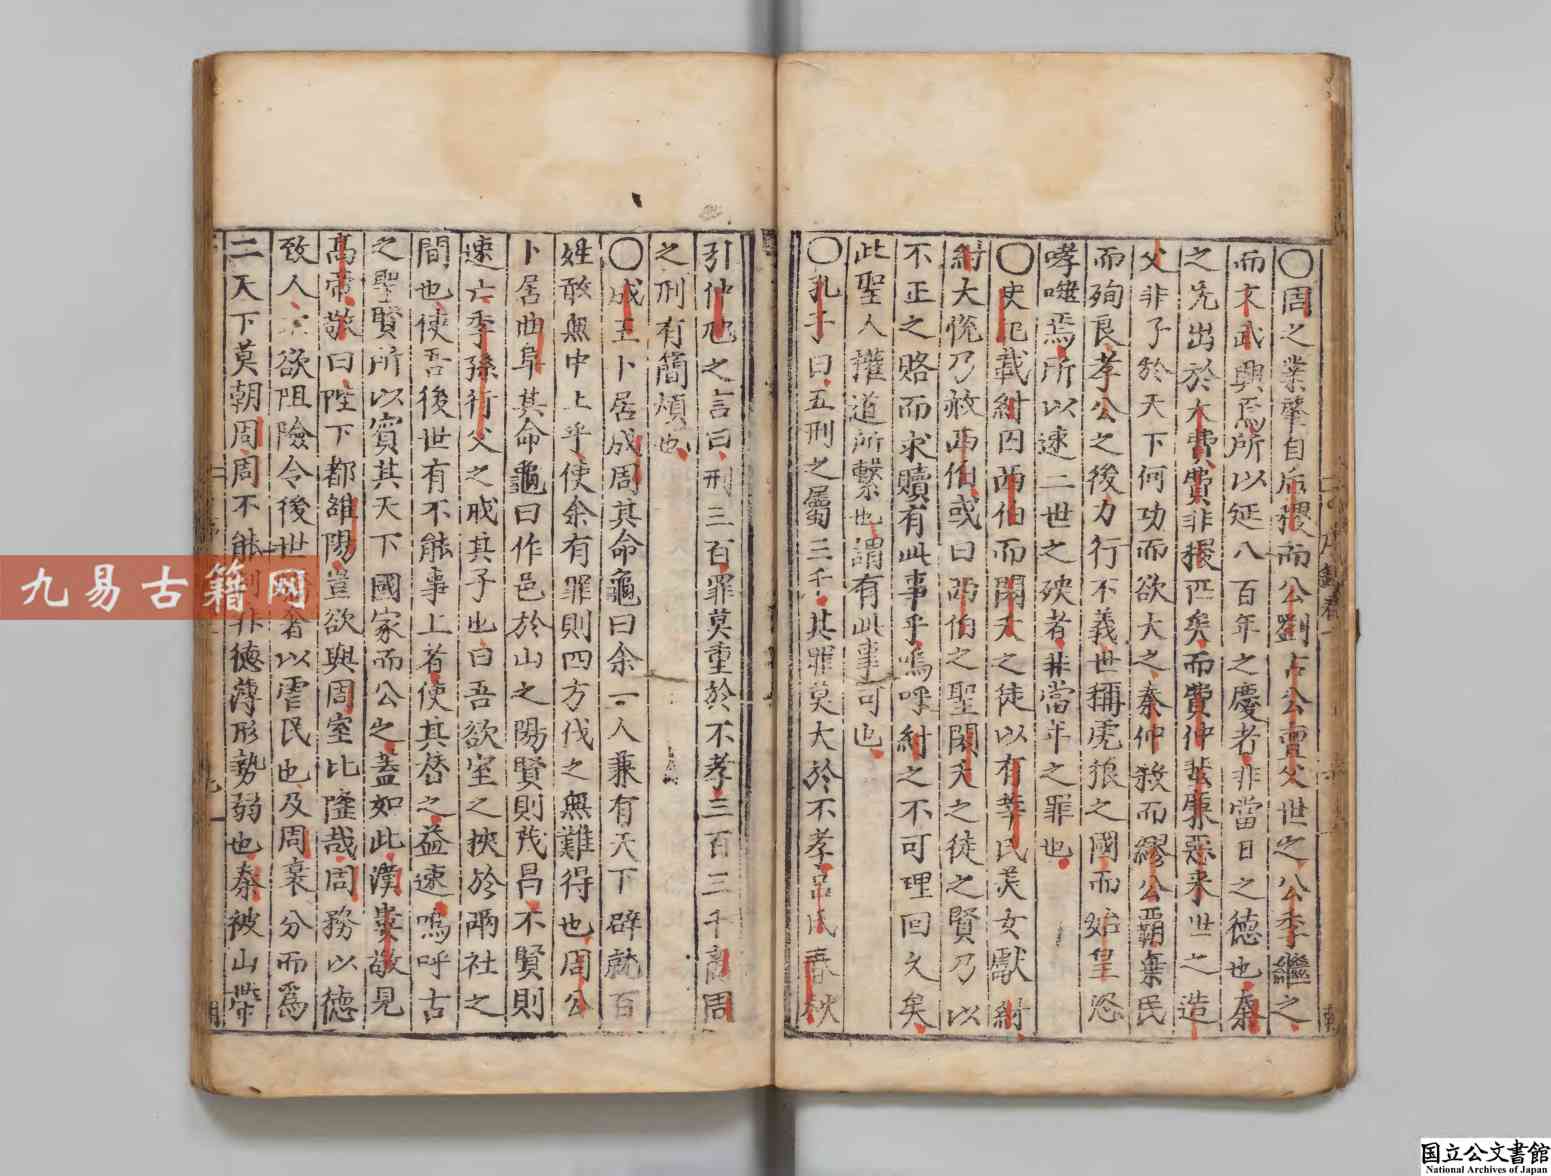 〇周之業肇自后稷而公劉古公亶父世之公季繼之
而文武興焉所以延八百年之慶者非當日之德也秦
之先出於大費費非稷匹矣而費仲蜚廉惡来世之造
父非子於天下何功而欲大之秦仲殺而繆公霸棄民
而殉良孝公之後力行不義世稱虎狼之國而始皇恣
哮噬焉所以速二世之殃者非當年之罪也
〇史記載紂囚西伯而閎夭之徒以有莘氏美女獻紂
紂大悅乃赦西伯或曰西伯之聖閎夭之徒之賢乃以
不正之賂而求贖有此事乎嗚呼紂之不可理回久矣
此聖人權道所繫也謂有此事可也
〇孔子曰五刑之屬三千其罪莫大於不孝吕氏春秋
引仲虺之言曰刑三百罪莫重於不孝三百三千商周
之刑有簡煩也
〇成王卜居成周其命龜曰余一人兼有天下辟就百
姓敢無中土乎使余有罪則四方伐之無難得也周公
卜居曲阜其命龜曰作邑於山之陽賢則茂昌不賢則
速亡季孫行父之戒其子也曰吾欲室之挾於兩社之
間也使吾後世有不能事上者使其替之益速嗚呼古
之聖賢所以賓其天下國家而公之蓋如此漢婁敬見
高帝敬曰陛下都雒陽豈欲與周室比隆哉周務以德
致人 欲阻險令後世 者以虐民也及周衰分而爲
二天下莫朝周周不能制非德薄形勢弱也秦被山帶
九易古籍网
国立公文書館
National Archives of Japan